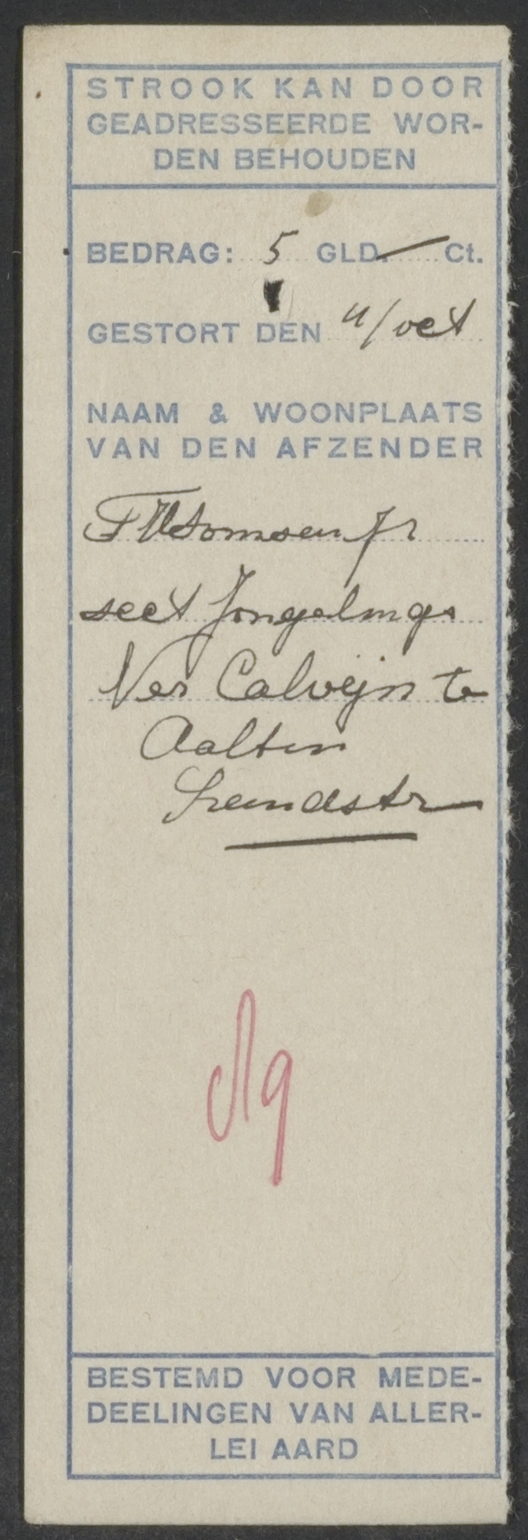 STROOK KAN DOOR
GEADRESSEERDE WOR-
DEN BEHOUDEN
BEDRAG: 5 GLD. — Ct.
GESTORT DEN 11/oct
NAAM & WOONPLAATS
VAN DEN AFZENDER
Somsen jr
sect Jongelings
Ver Calvijn te
Aalten
BESTEMD VOOR MEDE-
DEELINGEN VAN ALLER-
LEI AARD